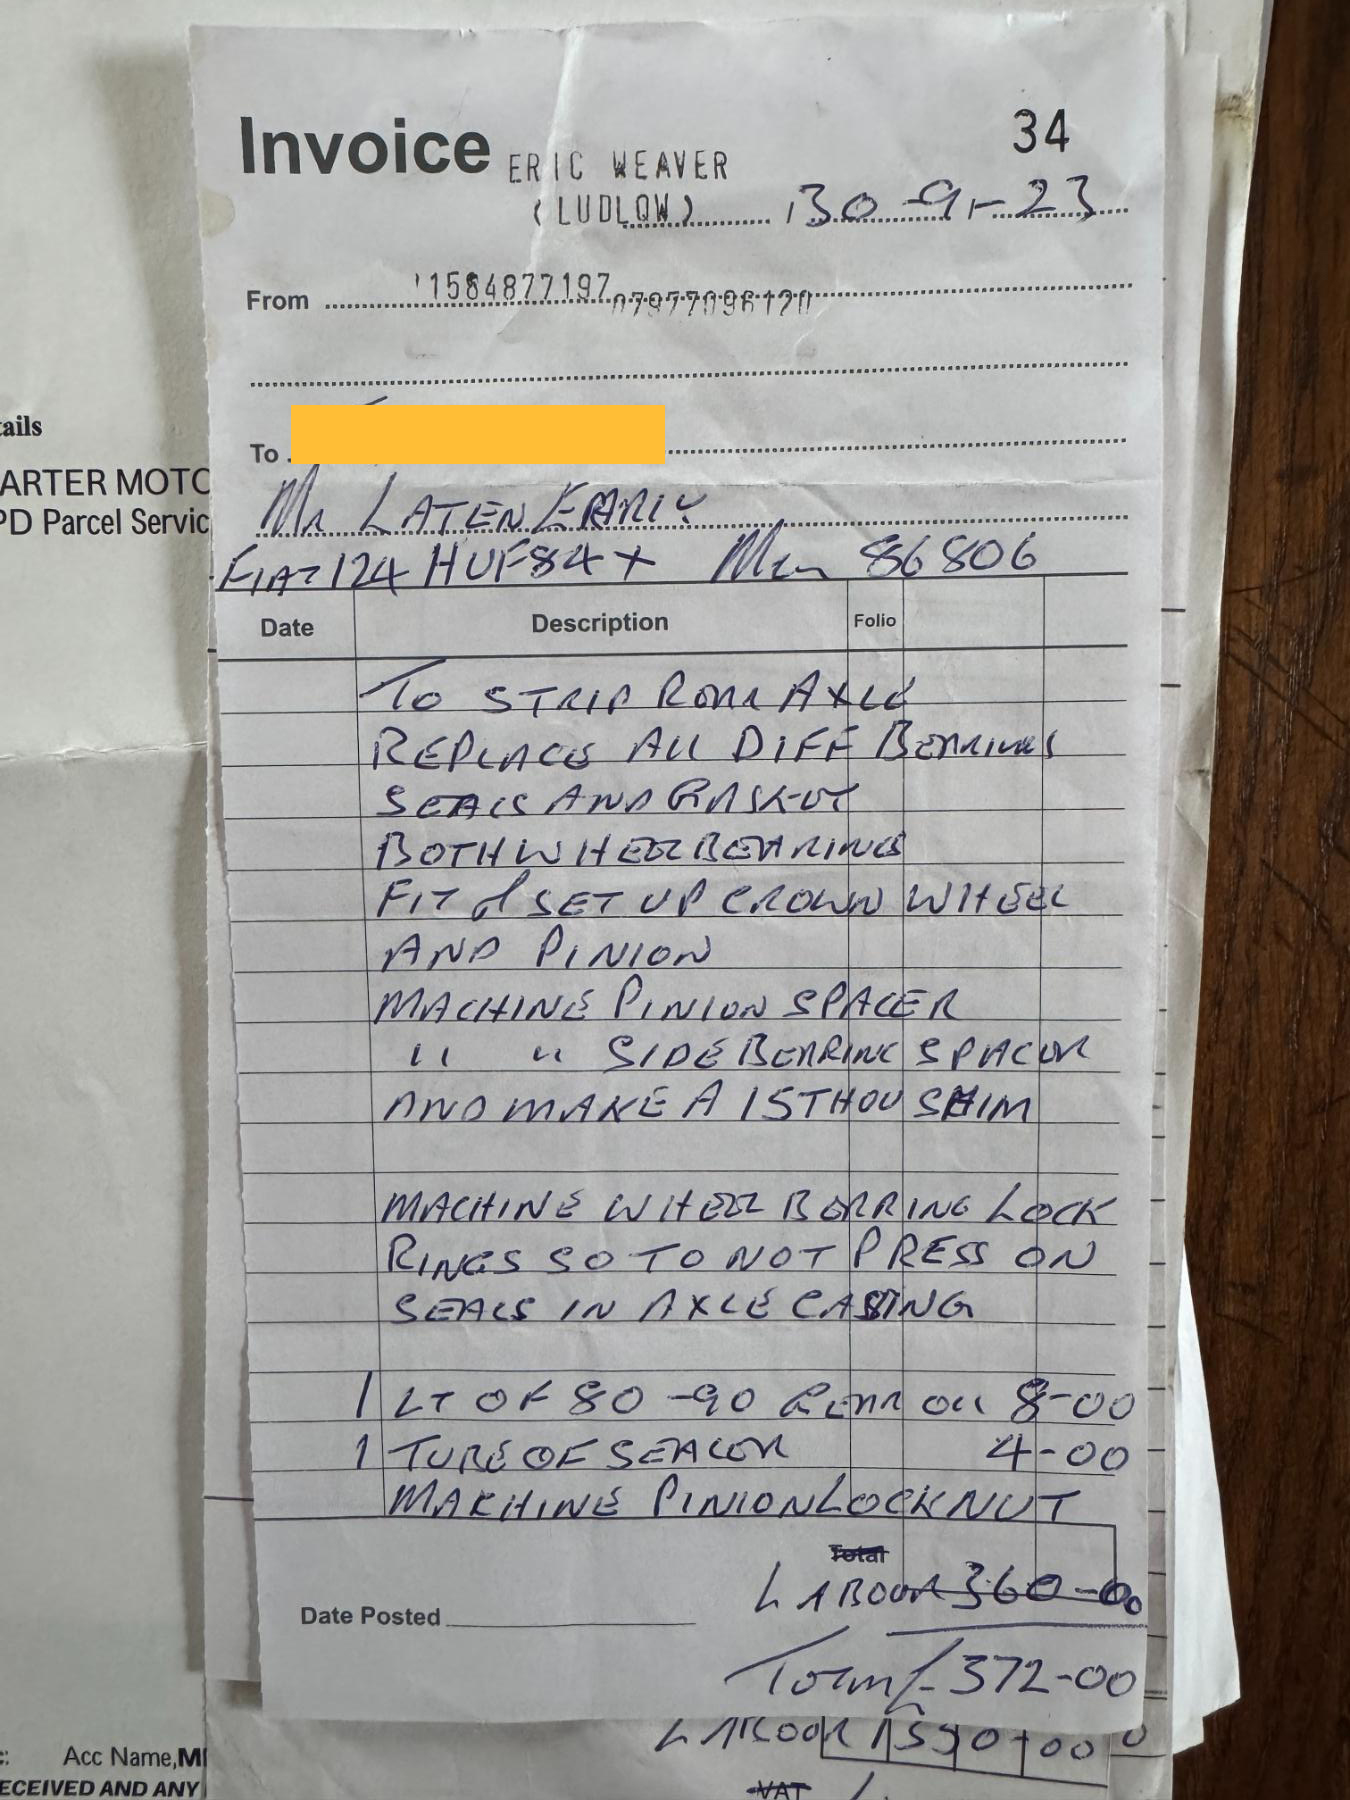 Invoice ERIC WEAVER 34
(LUDLOW) 30-9-23
From 1584877197 07977096120
To
Mr
FIAT 124 HUF84X 86806
Date Description Folio
TO STRIP REAR AXLE
REPLACE ALL DIFF BEARINGS
SEALS AND GASKET
BOTH WHEEL BEARINGS
FIT & SET UP CROWN WHEEL
AND PINION
MACHINE PINION SPACER
" " SIDE BEARING SPACER
AND MAKE A 15 THOU SHIM
MACHINE WHEEL BEARING LOCK
RINGS SO TO NOT PRESS ON
SEALS IN AXLE CASTING
1 LT OF 80-90 REAR OIL 8-00
1 TUBE OF SEALER 4-00
MACHINE PINION LOCKNUT
Total
LABOUR 360-00
Date Posted
Total £ 372-00
LABOUR 00
VAT
ails
ARTER MOTO
PD Parcel Servic
Acc Name, M
ECEIVED AND ANY